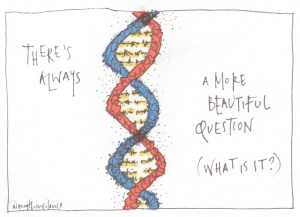 THERE'S
ALWAYS
A MORE
BEAUTIFUL
QUESTION
(WHAT IS IT?)